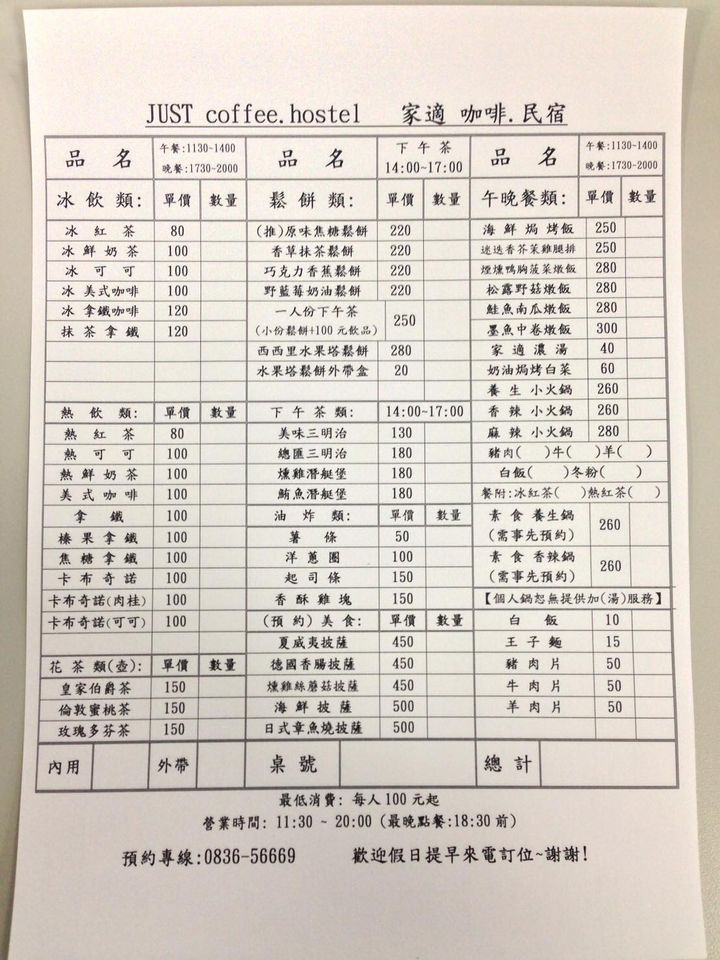 JUST coffee.hostel 家適 咖啡.民宿
品 名 午餐:1130~1400 晚餐:1730~2000
冰飲類: 單價 數量
冰紅茶 80
冰鮮奶茶 100
冰可可 100
冰美式咖啡 100
冰拿鐵咖啡 120
抹茶拿鐵 120
熱飲類: 單價 數量
熱紅茶 80
熱可可 100
熱鮮奶茶 100
美式咖啡 100
拿鐵 100
榛果拿鐵 100
焦糖拿鐵 100
卡布奇諾 100
卡布奇諾(肉桂) 100
卡布奇諾(可可) 100
花茶類(壺): 單價 數量
皇家伯爵茶 150
倫敦蜜桃茶 150
玫瑰多芬茶 150
品 名 下午茶 14:00~17:00
鬆餅類: 單價 數量
(推)原味焦糖鬆餅 220
香草抹茶鬆餅 220
巧克力香蕉鬆餅 220
野藍莓奶油鬆餅 220
一人份下午茶 250
(小份鬆餅+100元飲品)
西西里水果塔鬆餅 280
水果塔鬆餅外帶盒 20
下午茶類: 14:00~17:00
美味三明治 130
總匯三明治 180
燻雞潛艇堡 180
鮪魚潛艇堡 180
油炸類: 單價 數量
薯條 50
洋蔥圈 100
起司條 150
香酥雞塊 150
(預約)美食: 單價 數量
夏威夷披薩 450
德國香腸披薩 450
燻雞絲蘑菇披薩 450
海鮮披薩 500
日式章魚燒披薩 500
品 名 午餐:1130~1400 晚餐:1730~2000
午晚餐類: 單價 數量
海鮮焗烤飯 250
迷迭香芥菜雞腿排 250
煙燻鴨胸菠菜燉飯 280
松露野菇燉飯 280
鮭魚南瓜燉飯 280
墨魚中卷燉飯 300
家適濃湯 40
奶油焗烤白菜 60
養生小火鍋 260
香辣小火鍋 260
麻辣小火鍋 280
豬肉( )牛( )羊( )
白飯( )冬粉( )
餐附:冰紅茶( )熱紅茶( )
素食養生鍋 260
(需事先預約)
素食香辣鍋 260
(需事先預約)
【個人鍋恕無提供加(湯)服務】
白飯 10
王子麵 15
豬肉片 50
牛肉片 50
羊肉片 50
內用 外帶 桌號 總計
最低消費: 每人100元起
營業時間: 11:30 ~ 20:00 (最晚點餐:18:30前)
預約專線:0836-56669 歡迎假日提早來電訂位~謝謝!